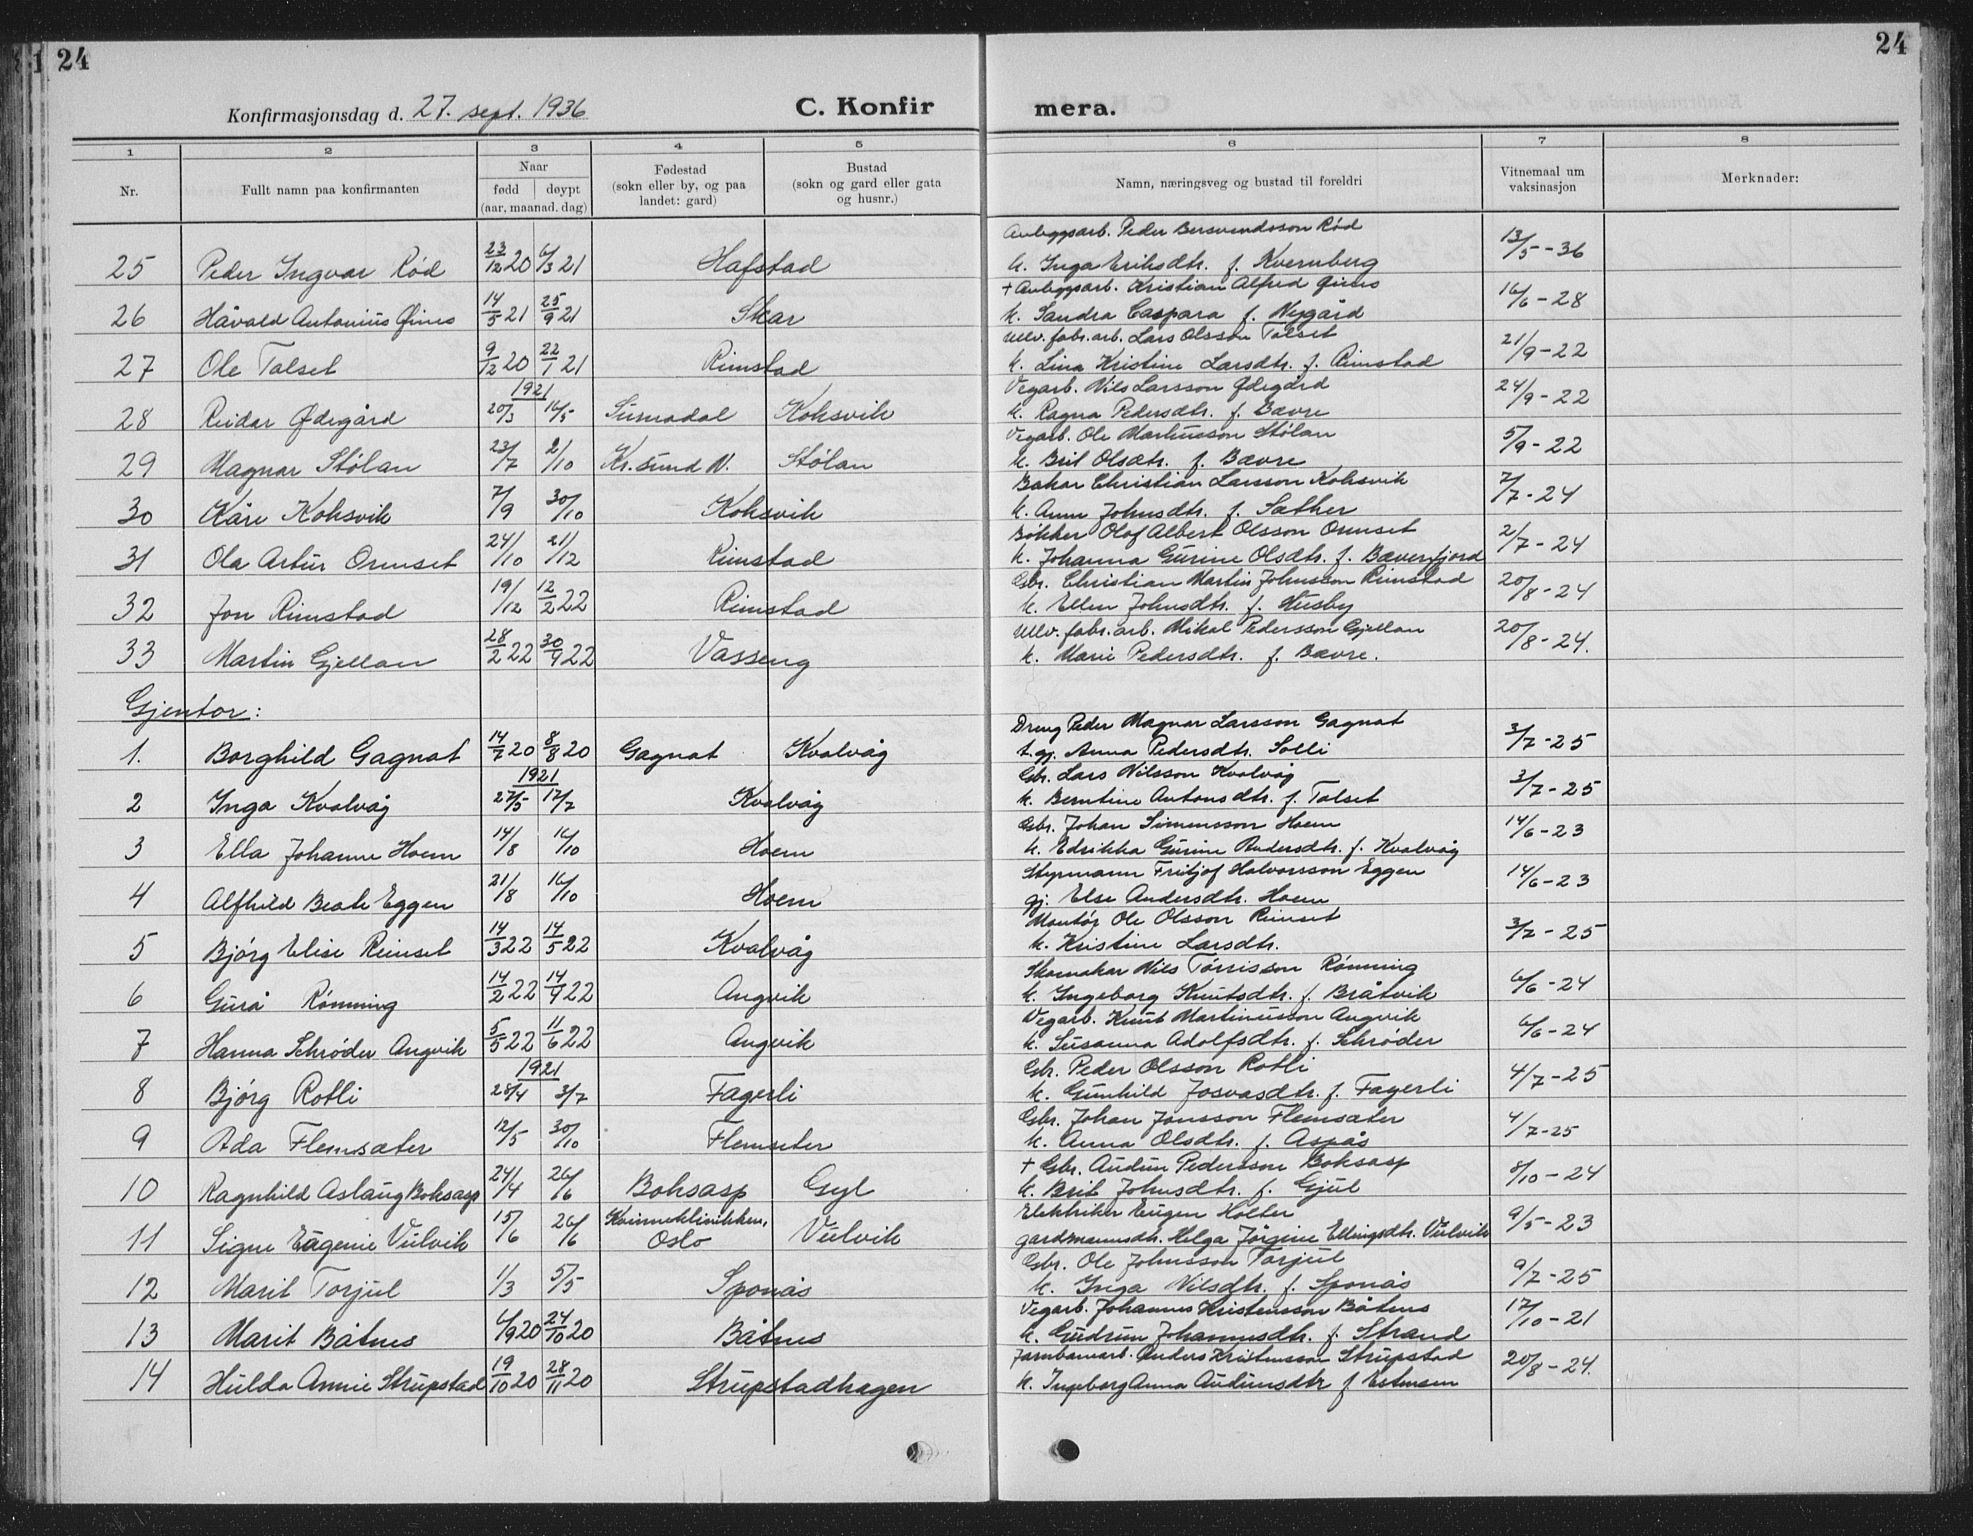 24
24
Konfirmasjonsdag d. 27. sept. 1936
C. Konfir mera.
1 2 3 4 5 6 7 8
Nr. Fullt namn paa konfirmanten Naar født døypt (aar, maanad, dag) Fødestad (sokn eller by, og paa landet: gard) Bustad (sokn og gard eller gata og husnr.) Namn, næringsveg og bustad til foreldri Vitnemaal um vaksinasjon Merknader:
Anleggsarb. Peder Bersvendsson Rød
25 Peder Ingvar Rød 23/12 20 6/3 21 Hafstad k. Inga Eriksdtr. f. Kvernberg 13/5-36
+ Anleggsarb. Kristian Alfred Øines
26 Håvald Antonius Øines 14/5 21 25/9 21 Skar k. Sandra Caspara f. Nygård 16/6-28
Ullv. fabr. arb. Lars Olsson Talset
27 Ole Talset 9/12 20 22/1 21 Rimstad k. Lina Kristine Larsdtr. f. Rimstad 21/9-22
1921
Vegarb. Nils Larsson Ødegård
28 Reidar Ødegård 20/3 16/5 Surnadal Koksvik k. Ragna Pedersdtr. f. Bævre 24/9-22
Vegarb. Ole Martinsson Stølan
29 Magnar Stølan 23/7 2/10 Kr.sund N. Stølan k. Brit Olsdtr. f. Bævre 5/9-22
Bakar Christian Larsson Koksvik
30 Kåre Koksvik 7/9 30/10 Koksvik k. Anne Johnsdtr. f. Sæther 7/7-24
Bøkker Olaf Albert Olsson Ormset
31 Ola Artur Ormset 24/10 21/12 Rimstad k. Johanna Gurine Olsdtr. f. Bæverfjord 2/7-24
Gbr. Christian Martin Johnsson Rimstad
32 Jon Rimstad 19/12 12/2 22 Rimstad k. Ellen Johnsdtr. f. Husby 20/8-24
Ullv. fabr. arb. Mikal Pedersson Gjellan
33 Martin Gjellan 28/2 22 30/9 22 Vasseng k. Marie Pedersdtr. f. Bævre. 20/8-24.
Gjentor:
Dreng Peder Magnar Larsson Gagnat
1. Borghild Gagnat 14/7 20 8/8 20 Gagnat Kvalvåg t. gj. Anna Pedersdtr. Solli 3/7-25
1921
Gbr. Lars Nilsson Kvalvåg
2 Inga Kvalvåg 27/5 17/7 Kvalvåg k. Berntine Antonsdtr. f. Talset 3/7-25
Gbr. Johan Simensson Hoem
3 Ella Johanne Hoem 14/8 16/10 Hoem k. Edrikka Gurine Andersdtr. f. Kvalvåg 14/6-23
Styrmann Fritjof Halvorsson Eggen
4 Alfhild Beate Eggen 21/8 16/10 Hoem gj. Else Andersdtr. Hoem 14/6-23
Montør Ole Olsson Reinset
5 Bjørg Elise Reinset 14/3 22 14/5 22 Kvalvåg k. Kristine Larsdtr. 3/7-25
Skomakar Nils Tørrisson Rønning
6 Gurå Rønning 14/2 22 14/9 22 Angvik k. Ingeborg Knutsdtr. f. Bråtvik 6/6-24
Vegarb. Knut Martinusson Angvik
7 Hanna Schrøder Angvik 5/5 22 11/6 22 Angvik k. Susanna Adolfsdtr. f. Schrøder 6/6-24
1921
Gbr. Peder Olsson Rotli
8 Bjørg Rotli 28/4 3/7 Fagerli k. Gunhild Josvasdtr. f. Fagerli 4/7-25
Gbr. Johan Jonsson Flemsæter
9 Ada Flemsæter 12/5 30/10 Flemseter k. Anna Olsdtr. f. Aspås 4/7-25
+ Gbr. Audun Pedersson Boksasp
10 Ragnhild Aslaug Boksasp 24/4 26/6 Boksasp Gyl k. Brit Johnsdtr. f. Gjul 8/10-24
Elektriker Eugen Holter
11 Signe Eugenie Vulvik 15/6 26/6 Kvinneklinikken, Oslo Vulvik gardmannsdtr. Helga Jørgine Ellingsdtr. Vulvik 9/5-23
Gbr. Ole Johnsson Torjul
12 Marit Torjul 1/3 5/5 Sponås k. Inga Nilsdtr. f. Sponås 9/7-25
Vegarb. Johannes Kristensson Båtnes
13 Marit Båtnes 6/9 20 24/10 20 Båtnes k. Gudrun Johannesdtr. f. Strand 17/10-21
Jarnbanearb. Anders Kristensson Strupstad
14 Hulda Annie Strupstad 19/10 20 28/11 20 Strupstadhagen k. Ingeborg Anna Audunsdtr f Estensen 20/8-24.